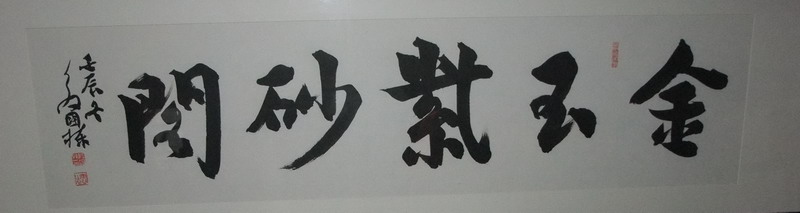 金玉紫砂閣
壬辰冬